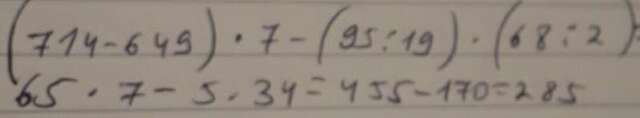 (714-649)·7-(95:19)·(68:2)=
65·7-5·34=455-170=285